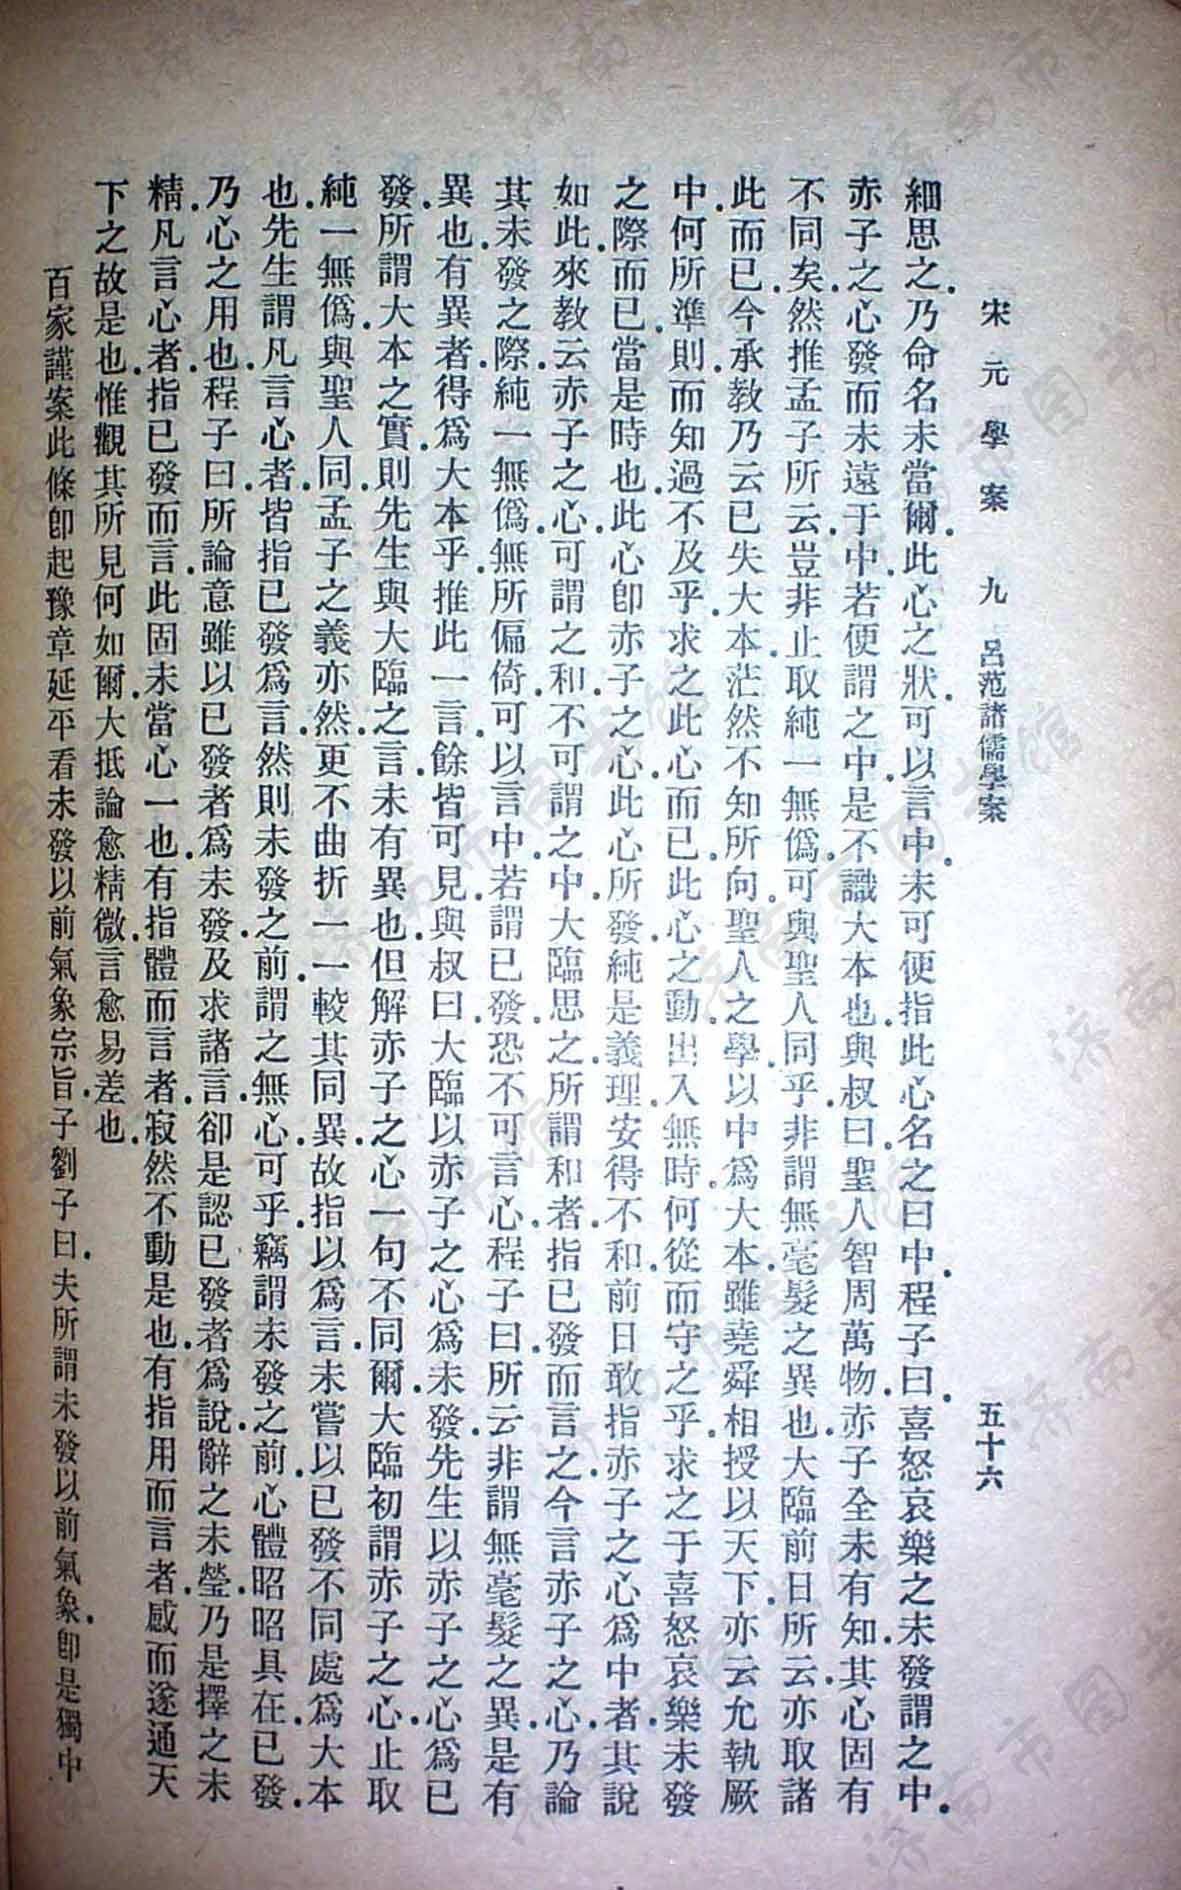 宋元學案 九 呂范諸儒學案 五十六
細思之.乃命名未當爾.此心之狀.可以言中.未可便指此心名之曰中.程子曰.喜怒哀樂之未發謂之中.
赤子之心.發而未遠于中.若便謂之中.是不識大本也.與叔曰.聖人智周萬物.赤子全未有知.其心固有
不同矣.然推孟子所云.豈非止取純一無僞.可與聖人同乎.非謂無毫髮之異也.大臨前日所云.亦取諸
此而已.今承教乃云已失大本.茫然不知所向.聖人之學.以中爲大本.雖堯舜相授以天下.亦云允執厥
中.何所準則而知過不及乎.求之此心而已.此心之動.出入無時.何從而守之乎.求之于喜怒哀樂未發
之際而已.當是時也.此心卽赤子之心.此心所發.純是義理.安得不和.前日敢指赤子之心爲中者.其說
如此.來教云.赤子之心.可謂之和.不可謂之中.大臨思之.所謂和者.指已發而言之.今言赤子之心.乃論
其未發之際.純一無僞.無所偏倚.可以言中.若謂已發.恐不可言心.程子曰.所云非謂無毫髮之異.是有
異也.有異者.得爲大本乎.推此一言.餘皆可見.與叔曰.大臨以赤子之心爲未發.先生以赤子之心爲已
發.所謂大本之實.則先生與大臨之言.未有異也.但解赤子之心一句不同爾.大臨初謂赤子之心.止取
純一無僞.與聖人同.孟子之義亦然.更不曲折.一一較其同異.故指以爲言.未嘗以已發不同處爲大本
也.先生謂凡言心者.皆指已發爲言.然則未發之前.謂之無心.可乎.竊謂未發之前.心體昭昭具在.已發.
乃心之用也.程子曰.所論意雖以已發者爲未發.及求諸言.卻是認已發者爲說.辭之未瑩.乃是擇之未
精.凡言心者.指已發而言.此固未當.心一也.有指體而言者.寂然不動是也.有指用而言者.感而遂通天
下之故是也.惟觀其所見何如爾.大抵論愈精微.言愈易差也.
百家謹案此條卽起豫章延平看未發以前氣象宗旨.子劉子曰.夫所謂未發以前氣象.卽是獨中